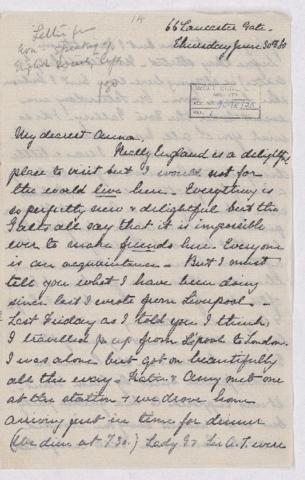 1A
Letter from
speaking of
English Society life
1880
66 Lancaster Gate.
Thursday June 30th 80
My dearest Anna.
Really England is a delightful
place to visit but I would not for
the world live here. Everything is
so perfectly new & delightful but the
Galts all say that it is impossible
ever to make friends here. Everyone
is an acquaintance. - But I must
tell you what I have been doing
since last I wrote from Liverpool. -
Last Friday as I told you I think,
I travelled up from L'pool to London.
I was alone but got on beautifully
all the way. Katie & Amy met me
at the station & we drove home
arriving just in time for dinner
(We dine at 7.30.) Lady G & Sir A. T. were